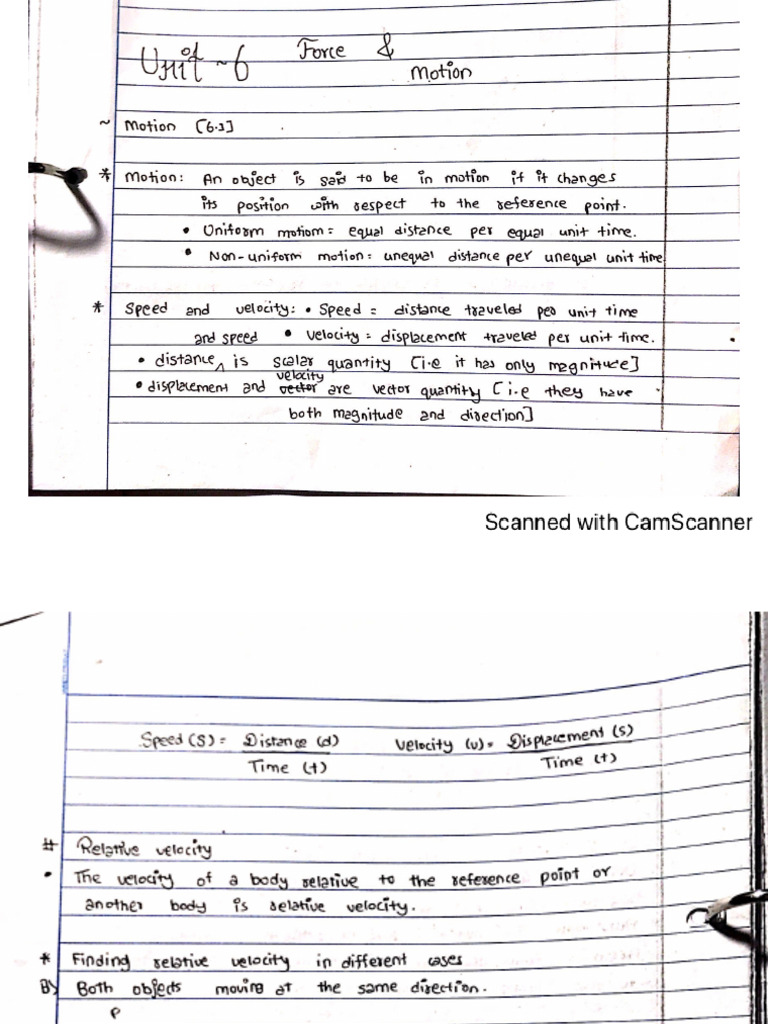 Unit ~ 6 Force &
Motion
~ Motion [6.1]
* Motion: An object is said to be in motion if it changes
its position with respect to the reference point.
• Uniform motion = equal distance per equal unit time.
• Non-uniform motion = unequal distance per unequal unit time
* Speed and velocity: • Speed = distance traveled per unit time
• Velocity = displacement traveled per unit time.
• distance and speed is scalar quantity [i.e it has only magnitude]
• displacement and velocity are vector quantity [i.e they have
both magnitude and direction]
Scanned with CamScanner
Speed (S) = Distance (d) Velocity (v) = Displacement (s)
Time (t) Time (t)
# Relative velocity
• The velocity of a body relative to the reference point or
another body is relative velocity.
* Finding relative velocity in different cases
Both objects moving at the same direction.